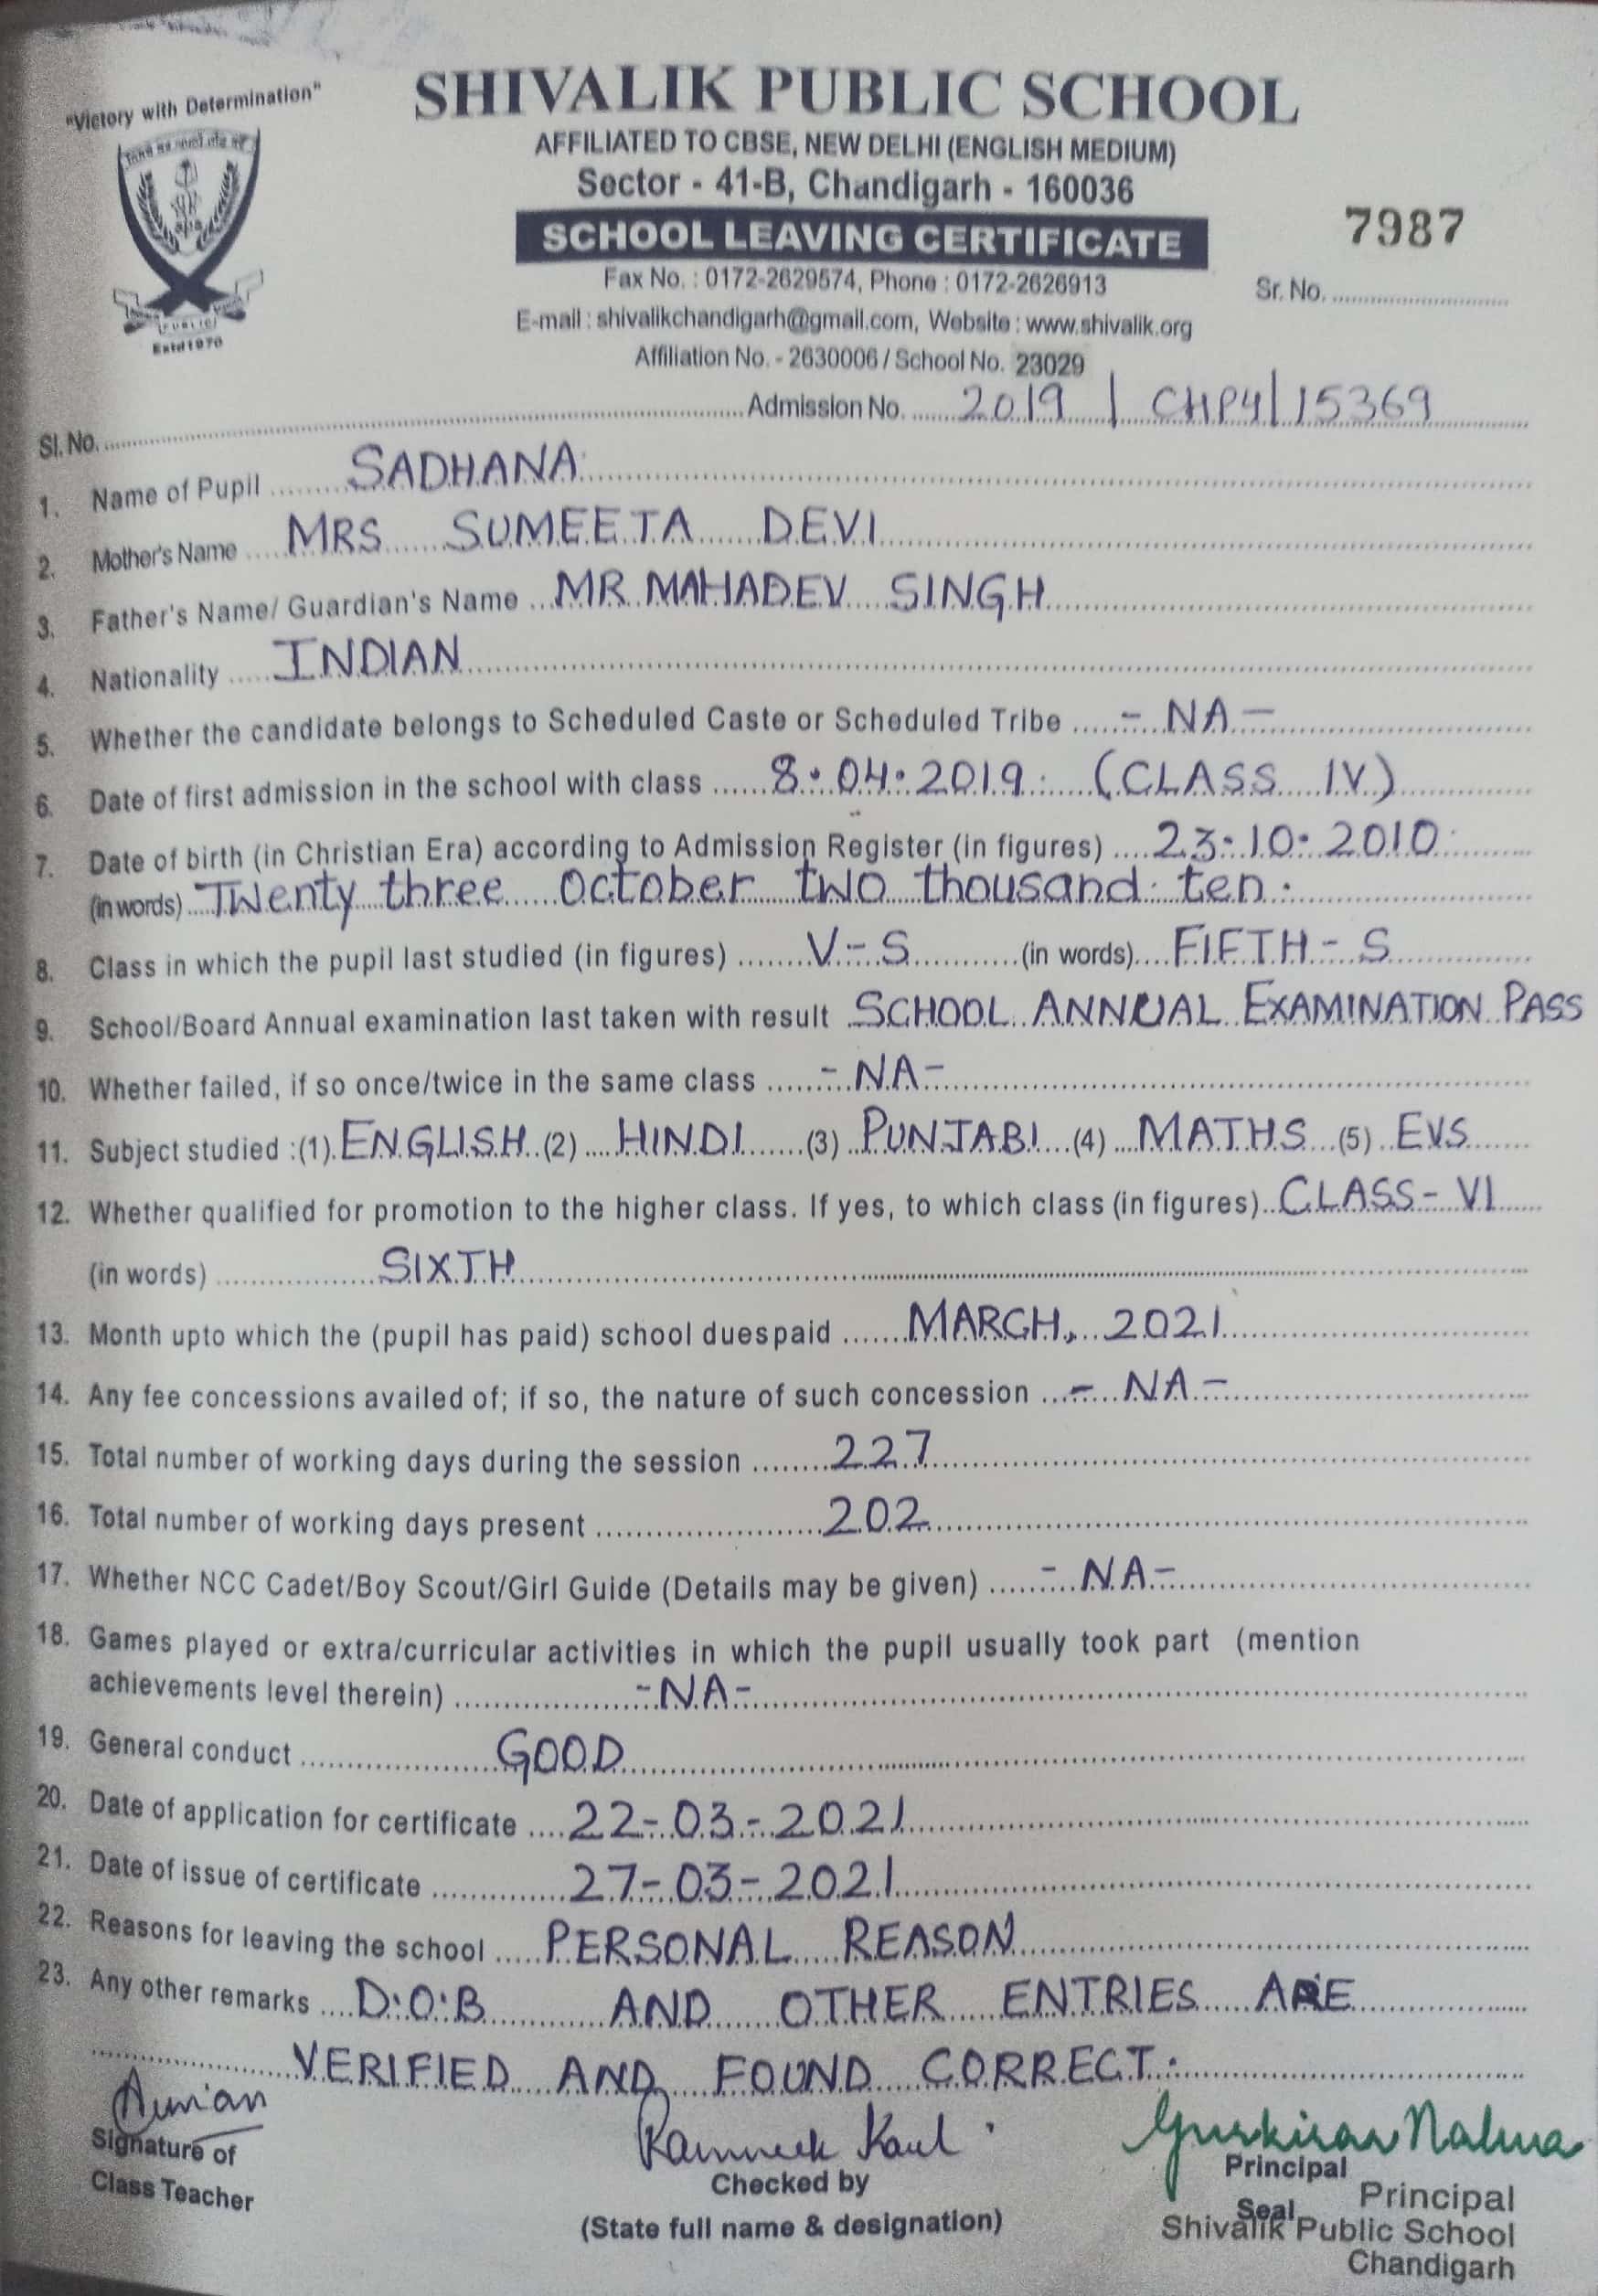 "Victory with Determination"
SHIVALIK PUBLIC SCHOOL
AFFILIATED TO CBSE, NEW DELHI (ENGLISH MEDIUM)
Sector - 41-B, Chandigarh - 160036
SCHOOL LEAVING CERTIFICATE
7987
Fax No. : 0172-2629574, Phone : 0172-2626913
Sr. No.
E-mail : shivalikchandigarh@gmail.com, Website : www.shivalik.org
PUBLIC
Estd 1970
Affiliation No. - 2630006 / School No. 23029
Sl. No. Admission No. 2019 | CHP4/15369
1. Name of Pupil SADHANA
2. Mother's Name MRS SUMEETA DEVI
3. Father's Name/ Guardian's Name MR MAHADEV SINGH
4. Nationality INDIAN
5. Whether the candidate belongs to Scheduled Caste or Scheduled Tribe - NA -
6. Date of first admission in the school with class 8.04.2019. (CLASS IV)
7. Date of birth (in Christian Era) according to Admission Register (in figures) 23-10-2010
(in words) Twenty three October two thousand ten.
8. Class in which the pupil last studied (in figures) V-S (in words) FIFTH - S
9. School/Board Annual examination last taken with result SCHOOL ANNUAL EXAMINATION PASS
10. Whether failed, if so once/twice in the same class - NA -
11. Subject studied :(1) ENGLISH (2) HINDI (3) PUNJABI (4) MATHS (5) EVS
12. Whether qualified for promotion to the higher class. If yes, to which class (in figures) CLASS - VI
(in words) SIXTH
13. Month upto which the (pupil has paid) school duespaid MARCH, 2021
14. Any fee concessions availed of; if so, the nature of such concession - NA -
15. Total number of working days during the session 227
16. Total number of working days present 202
17. Whether NCC Cadet/Boy Scout/Girl Guide (Details may be given) - NA -
18. Games played or extra/curricular activities in which the pupil usually took part (mention
achievements level therein) - NA -
19. General conduct GOOD
20. Date of application for certificate 22-03-2021
21. Date of issue of certificate 27-03-2021
22. Reasons for leaving the school PERSONAL REASON
23. Any other remarks D.O.B AND OTHER ENTRIES ARE
VERIFIED AND FOUND CORRECT.
Kaul
Signature of
Class Teacher
Checked by
(State full name & designation)
Principal
Seal
Principal
Shivalik Public School
Chandigarh